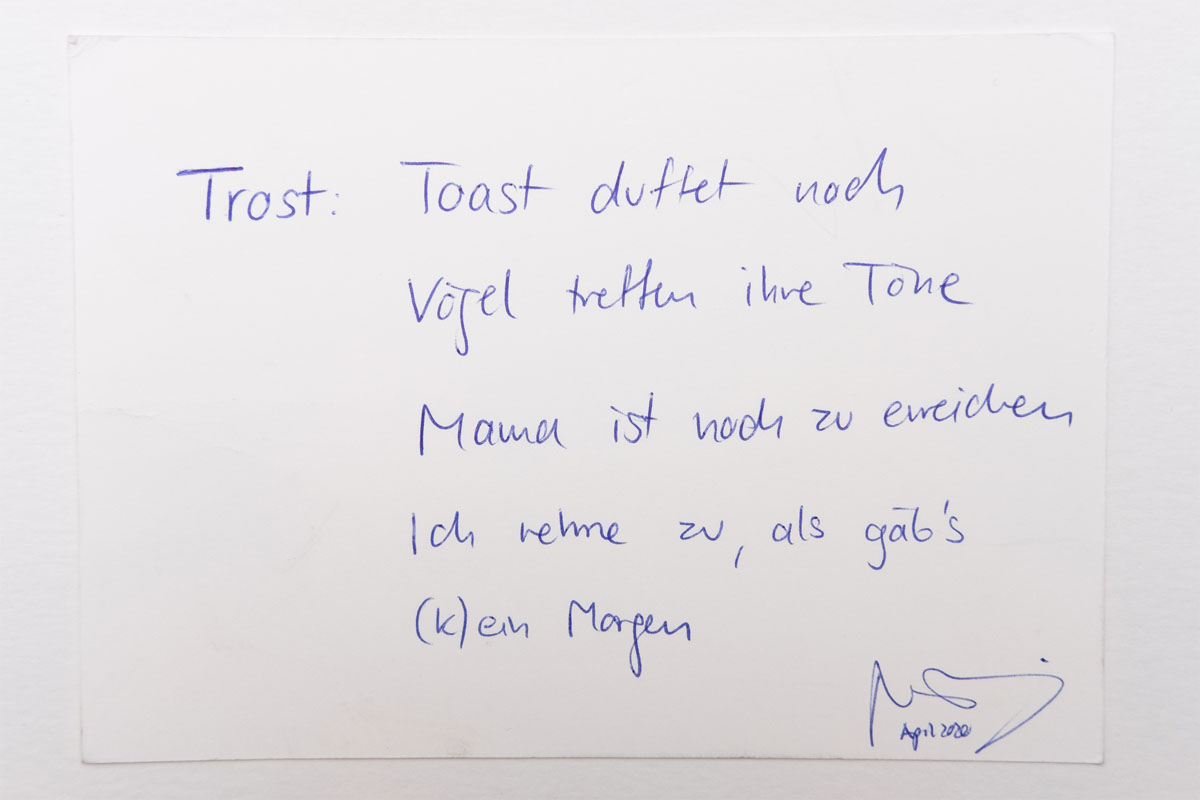 Trost: Toast duftet noch
Vögel treffen ihre Töne
Mama ist noch zu erreichen
Ich nehme zu, als gäb's
(k)ein Morgen
April 2020